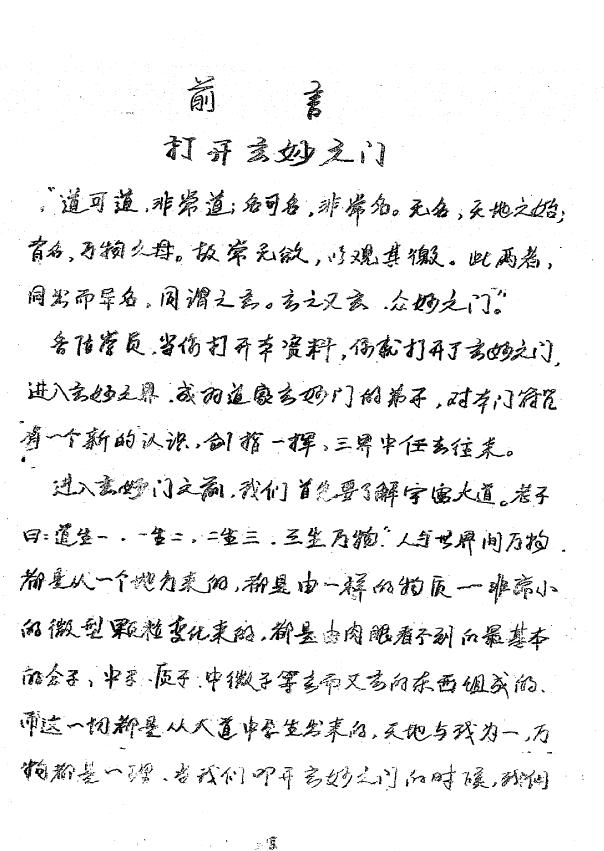 前 言
打开玄妙之门
“道可道,非常道;名可名,非常名。无名,天地之始;
有名,万物之母。故常无欲,以观其徼。此两者,
同出而异名,同谓之玄。玄之又玄,众妙之门”。
各位学员,当你打开本资料,你就打开了玄妙之门,
进入玄妙之界,成为道家玄妙门的弟子,对本门符咒
有一个新的认识,剑指一挥,三界中任去往来。
进入玄妙门之前,我们首先要了解宇宙大道。老子
曰:道生一,一生二,二生三,三生万物”人与世界间万物,
都是从一个地方来的,都是由一样的物质一非常小
的微型颗粒变化来的,都是由肉眼看不到的最基本
的分子,中子、质子、中微子等玄而又玄的东西组成的,
而这一切都是从大道中孕生出来的,天地与我为一,万
物都是一理,当我们叩开玄妙之门的时候,我们